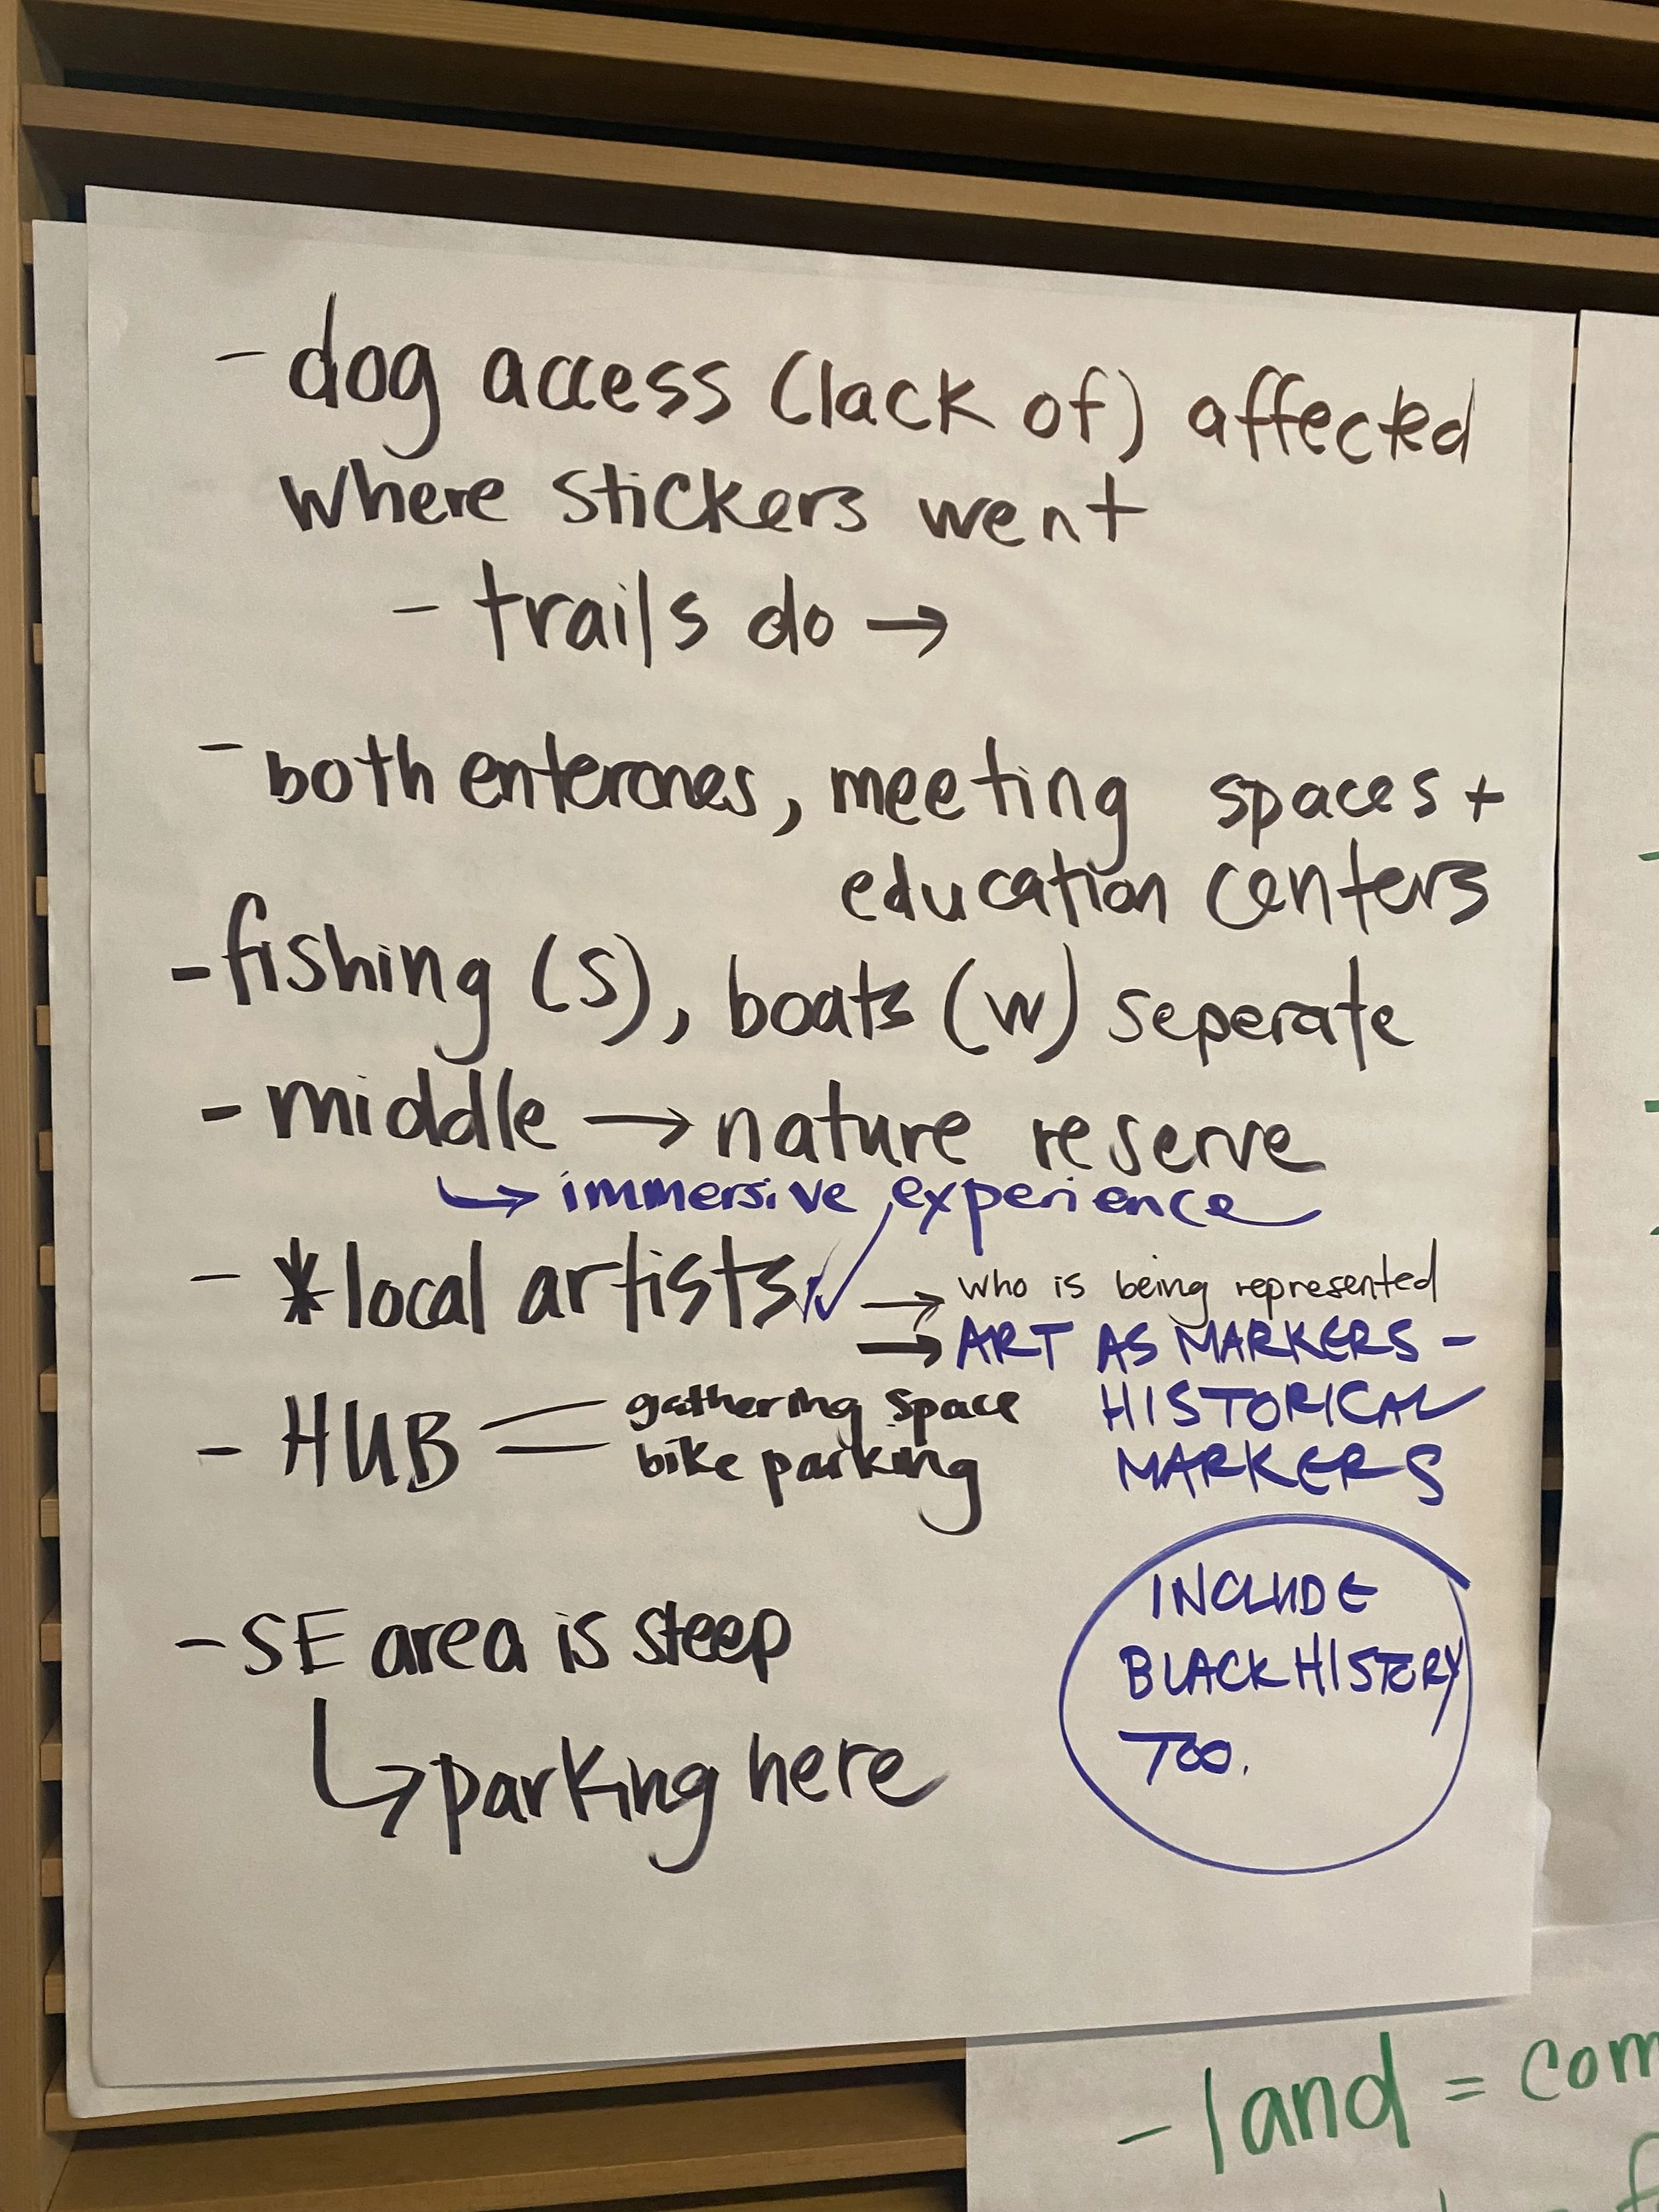 - dog access (lack of) affected
where stickers went
- trails do →
- both enterances, meeting spaces +
education centers
- fishing (S), boats (W) seperate
- middle → nature reserve
↳ immersive experience
- * local artists ✓ → who is being represented
→ ART AS MARKERS -
HISTORICAL
MARKERS
- HUB = gathering space
bike parking
- SE area is steep
↳ parking here
INCLUDE
BLACK HISTORY
TOO.
- land = com